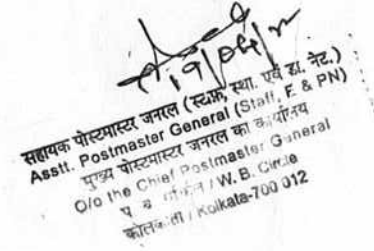 सहायक पोस्टमास्टर जनरल (स्टाफ, स्था. एवं डा. नेट.)
Asstt. Postmaster General (Staff, E. & PN)
मुख्य पोस्टमास्टर जनरल का कार्यालय
O/o the Chief Postmaster General
W. B. Circle
कोलकाता / Kolkata-700 012